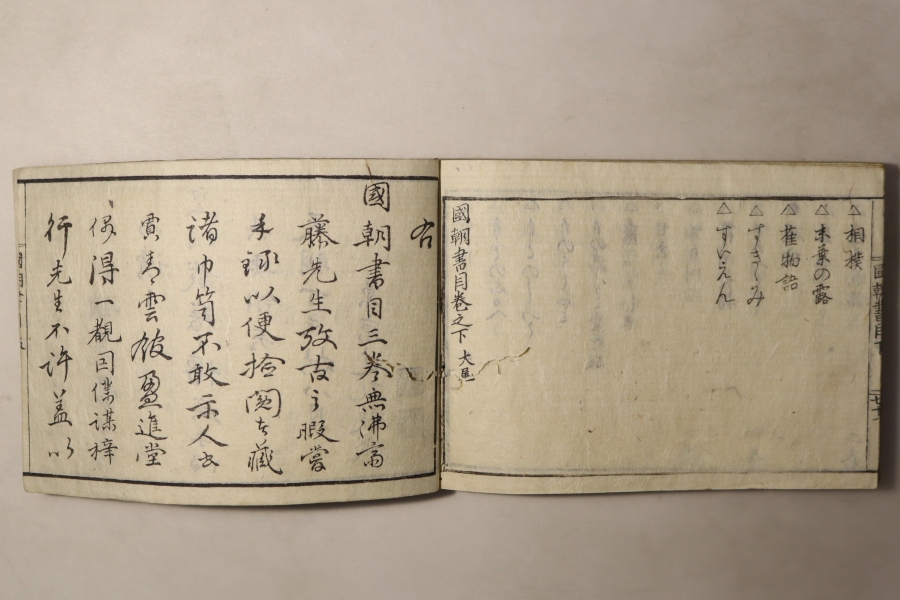 △相撲
△木葉の露
△薩物語
△すきくみ
△すいえん
國朝書目巻之下 大尾
右
國朝書目三巻無佛斎
藤先生攷古之暇嘗
手録以便捡閲者藏
諸巾笥不敢示人也
賈青雲舘盈進堂
偶得一觀因僕謀梓
行先生不許蓋以
國朝書目下